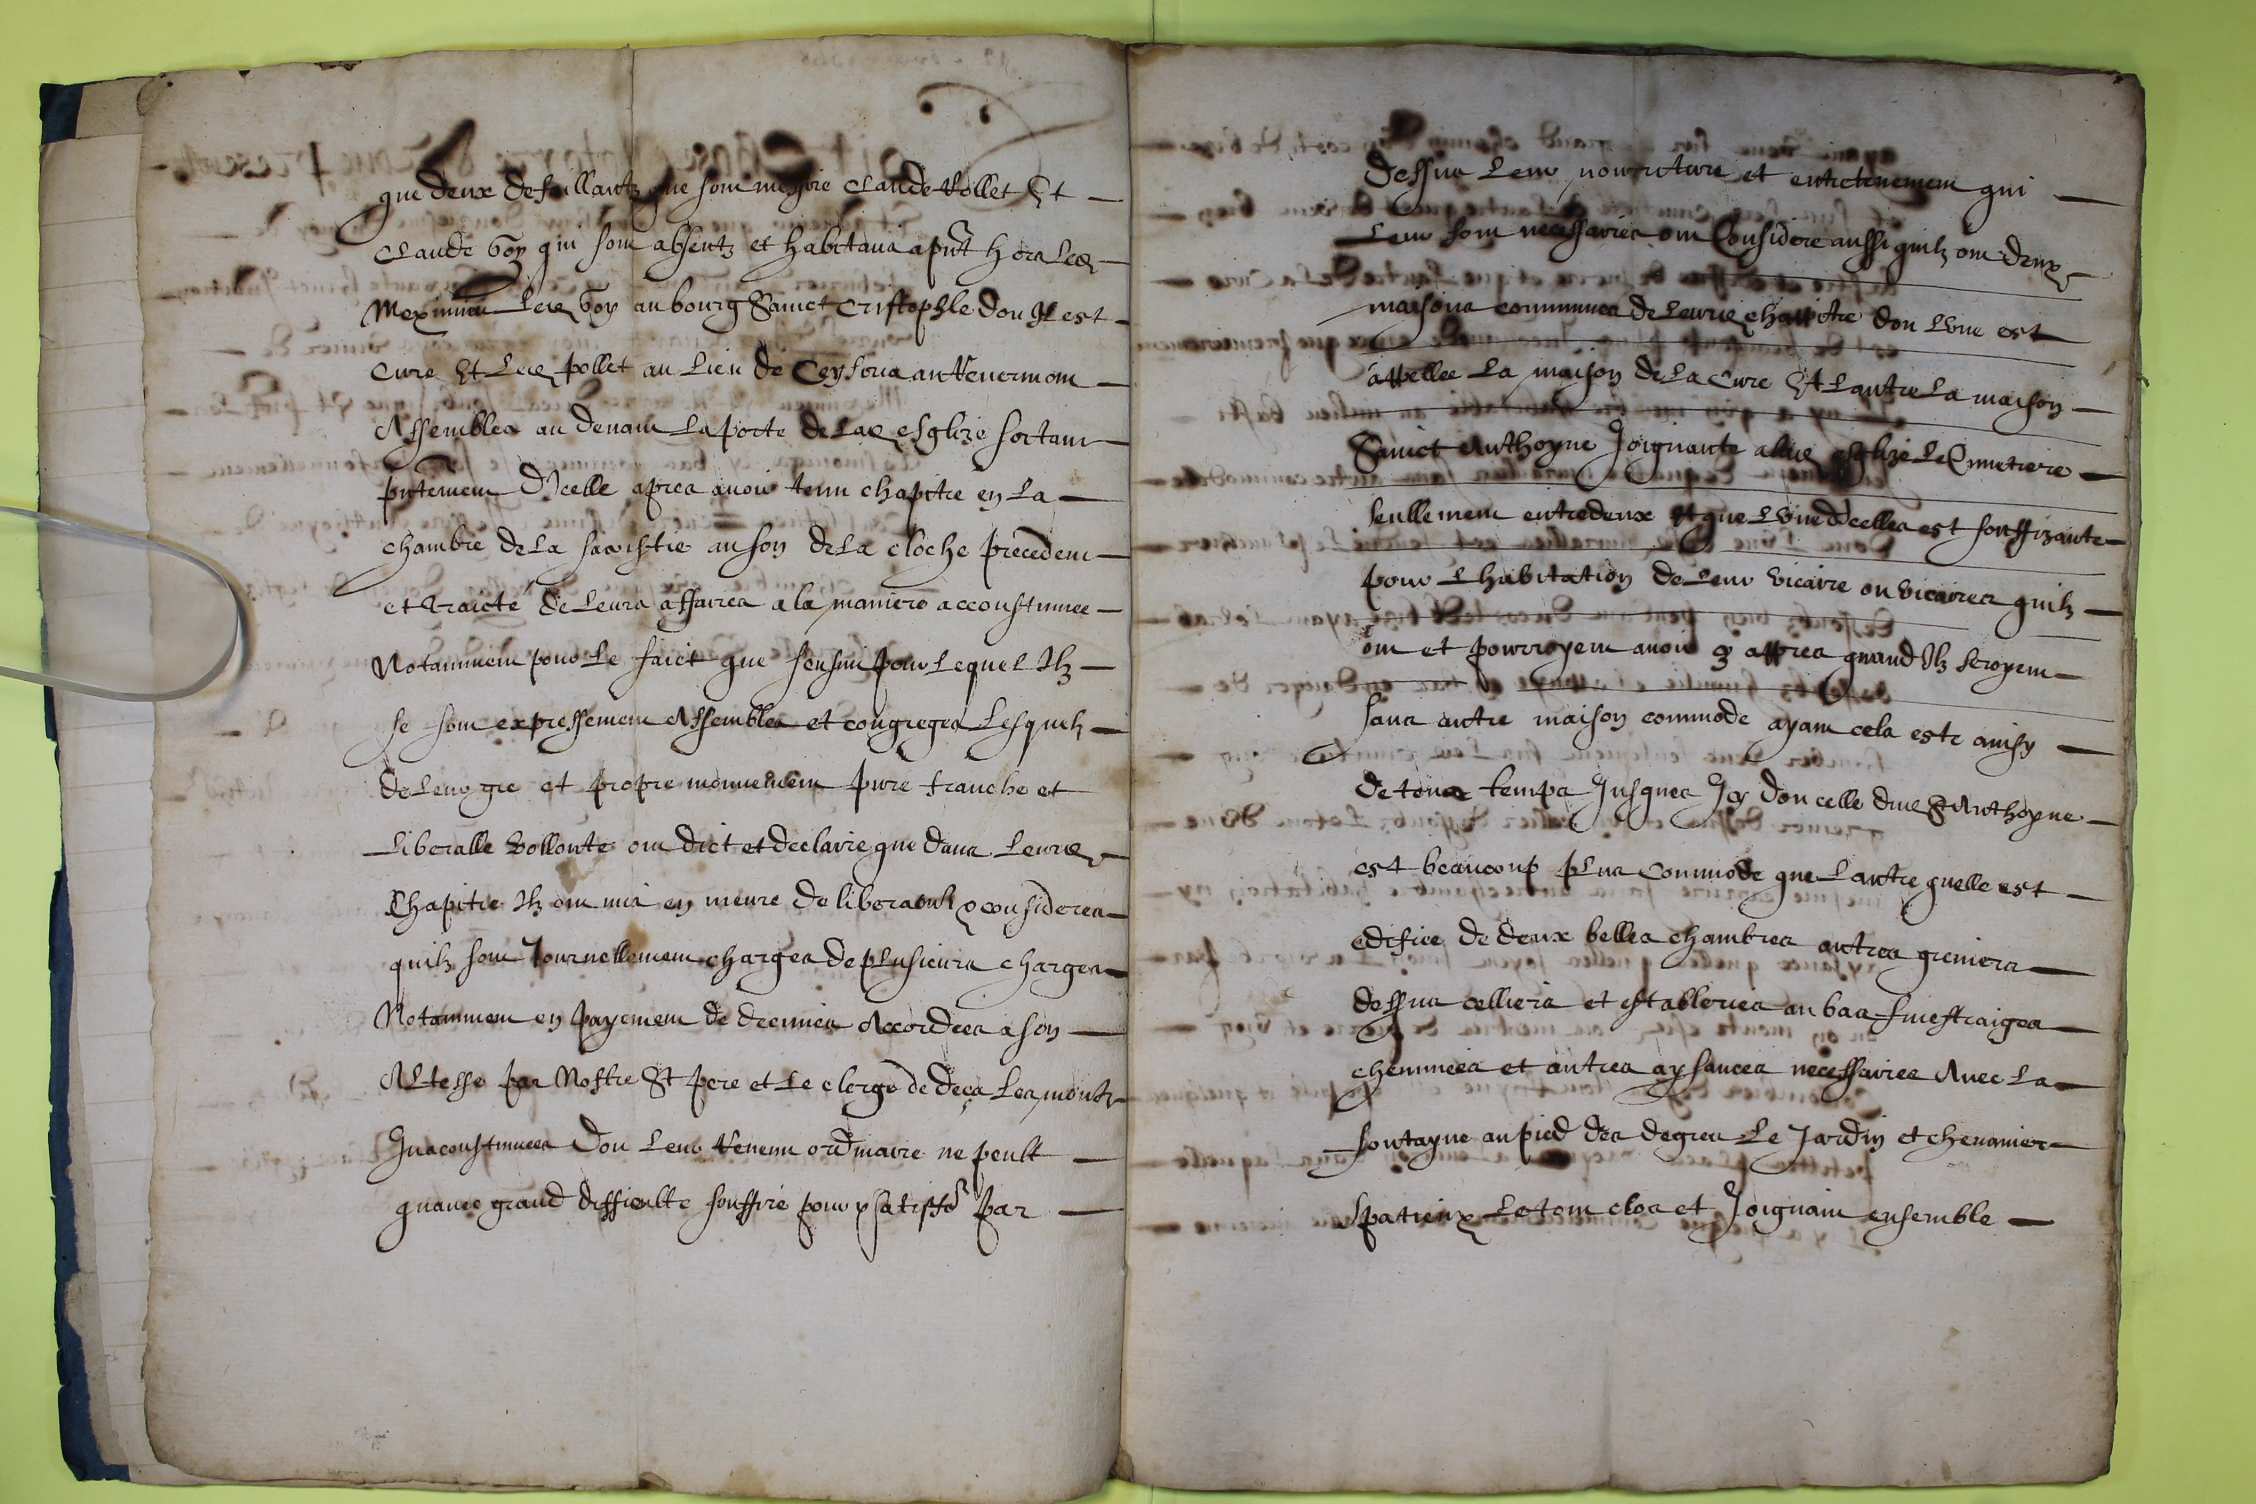 que deux defaillantz que sont messire Claude Pollet Et
Claude Goy qui sont absentz et habitans a pnt hors led
Meximieu led Goy au bourg Sainct Cristophle don Il est
cure Et led Pollet au lieu de Ceysria en Revermont
Assembles au devant la porte de lad esglize sortant
pntement dIcelle apres avoir tenu chapitre en la
chambre de la sacristie au son de la cloche precedent
et traicté de leurs affaires a la maniere accoustumee
Notamment pour le faict que sensuit pour lequel Ilz
se sont expressement Assembles et congreges Lesquelz
de leur gre et propre mouvement pure franche et
liberalle vollonte ont dict et declaire que dans leurd
Chapitre Ilz ont mis en meure deliberaon consideres
quilz sont Journellement charges de plusieurs charges
Notamment en payement de decimes Accordees a son
Altesse par Nostre St pere et le clerge de deça les montz
Inaconstumees Don leur Revenu ordinaire ne peult
quavec grand difficulte souffire pour y satisfe par
dessus leur nourriture et entretenement qui
leur sont necessaires ont Considere aussi quilz ont deux
maisons communes de leurd chappitre don lune est
appellee La maison de la Cure Et lautre la maison
Sainct Anthoyne Joignante a lad esglize le Cimetiere
seullement entredeux Et que lune dicelles est souffizante
pour lhabitation de leur vicaire ou vicaires quilz
ont et pourroyent avoir cy appres quand Ilz seroyent
sans autre maison commode ayant cela este ainsy
de tous temps Jusques Icy Don celle dud St Anthoyne
est beaucoup plus commode que lautre quelle est
edifiee de deux belles chambres autres greniers
dessus celliers et estableries au bas finestraiges
cheminees et autres aysances necessaires Avec la
fontayne au pied des degres le Jardin et chenavier
spatieux le tout clos et Joignant ensemble